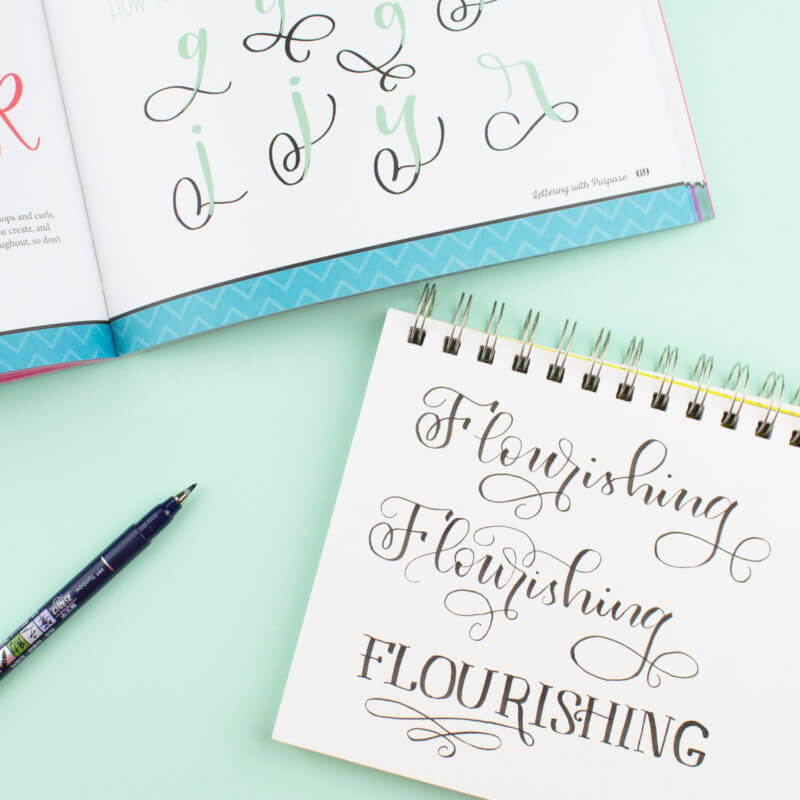 HOW TO
g g g
j j y r
R
ops and curls,
u create, and
ughout, so don't
Lettering with Purpose 69
Flourishing
Flourishing
FLOURISHING
Tombow